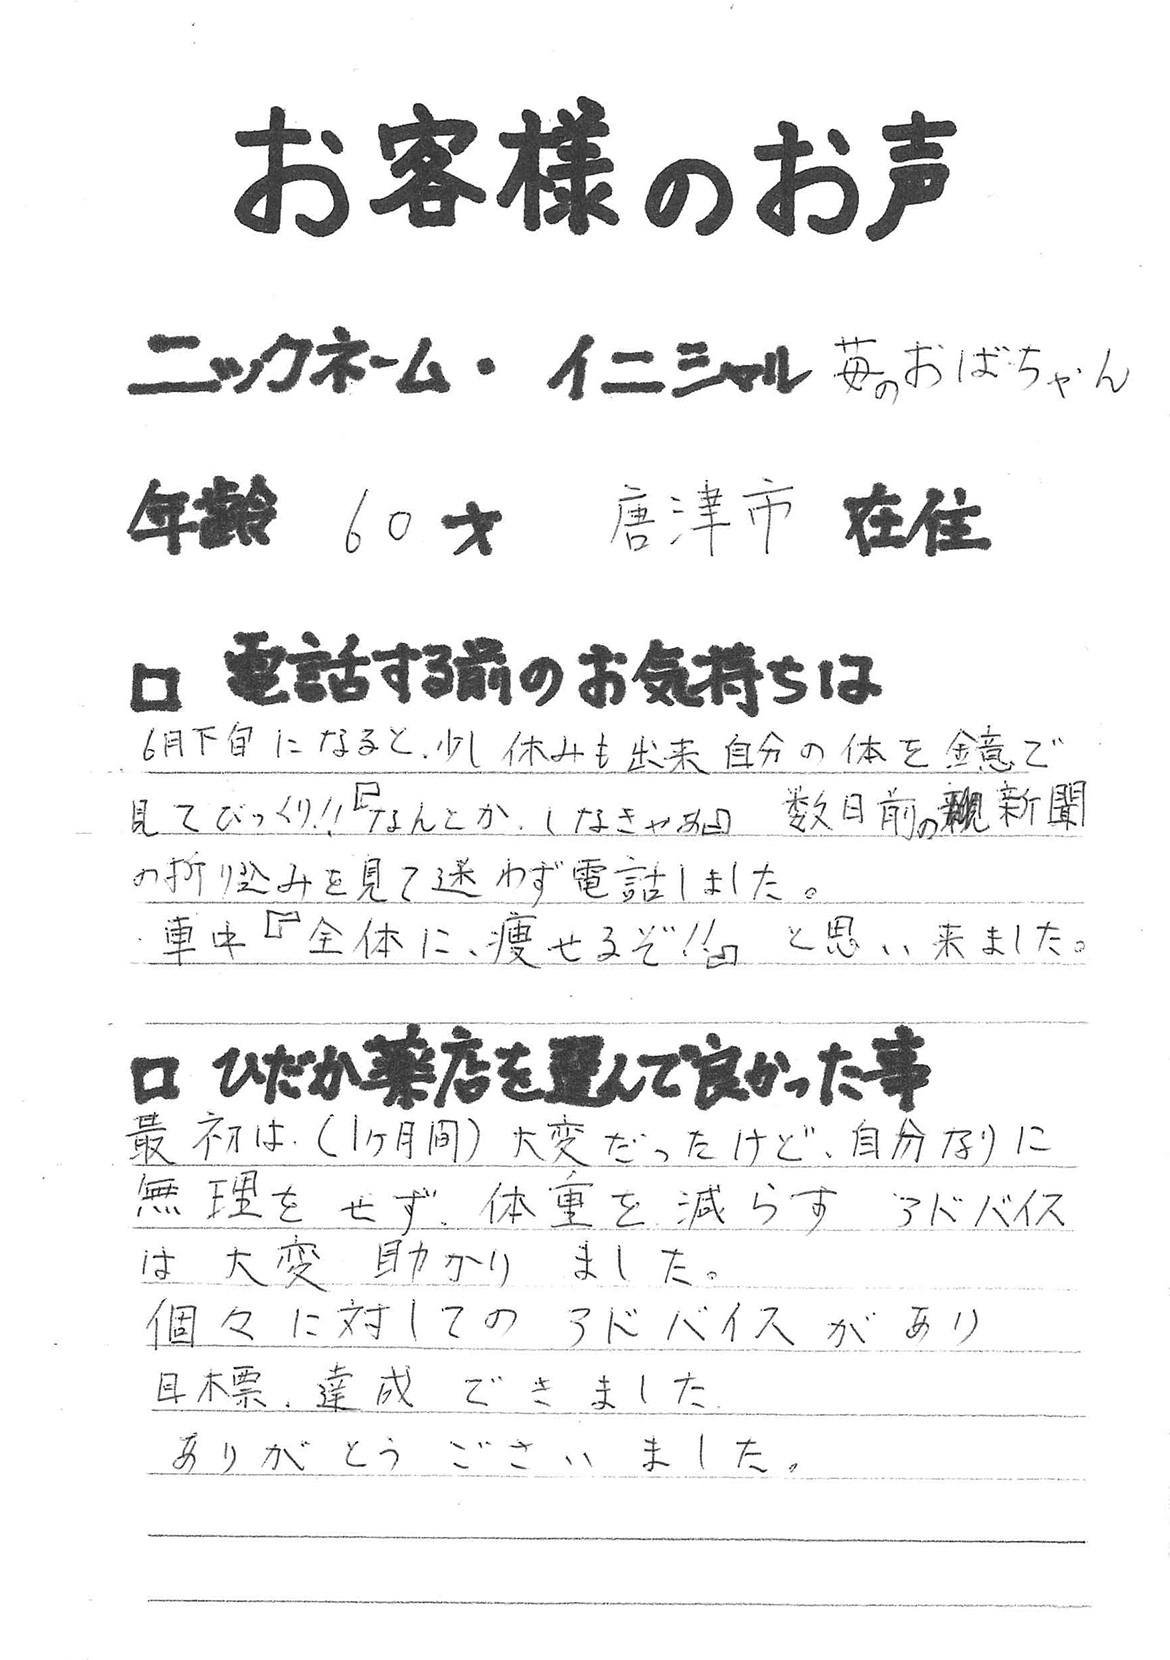 お客様のお声
ニックネーム・イニシャル 苺のおばちゃん
年齢 60才 唐津市在住
□ 電話する前のお気持ちは
6月下旬になると、少し休みも出来自分の体を鏡で
見てびっくり!!『なんとか、しなきゃぁ』 数日前の新聞
の折り込みを見て迷わず電話しました。
車中『全体に、痩せるぞ!!』と思い来ました。
□ ひだか薬店を選んで良かった事
最初は、(1ヶ月間)大変だったけど、自分なりに
無理をせず、体重を減らす アドバイス
は 大変 助かり ました。
個々に対しての アドバイスがあり
目標、達成 できました
ありがとう ございました。